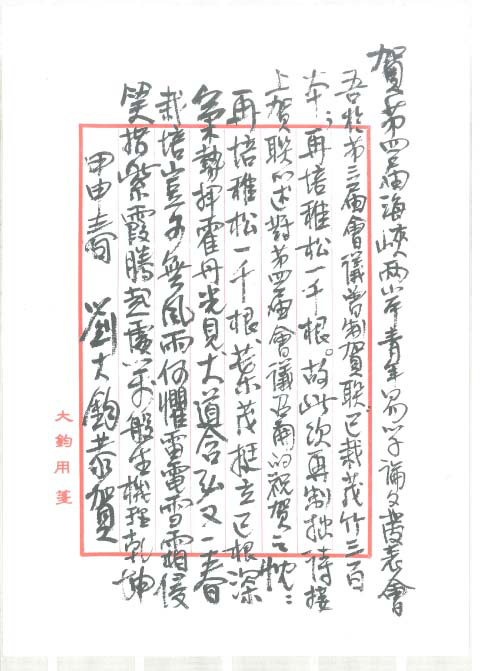 賀第四屆海峽兩岸青年易學論文發表會
吾於第三屆會議曾制賀聯：已栽茂竹三百
本，再培稚松一千根。故此次再制拙詩接
上賀聯以述對第四屆會議召開的祝賀之忱：
再培稚松一千根，葉茂挺立已根深
氣勢揮霍丹光見，大道合弘又一春
栽培豈可無風雨，何懼雷電雪霜侵
笑指紫霞騰起處，萬般生機理乾坤
甲申春 劉大鈞恭賀
大鈞用箋